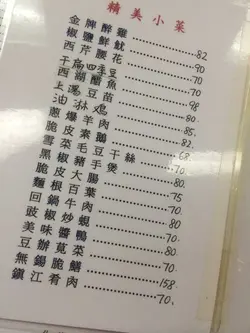 精美小菜
金牌醉雞 82
椒鹽鮮魷 90
西芹腰花 70
干扁四季豆 70
西湖醋魚
上湯豆苗 98.
油淋鸡 80.
蔥爆羊肉 85.
脆皮素鵝 82
雪菜毛豆干絲 68.
黑椒豬手煲 70.
脆皮大腸 80.
麵根百葉 75.
回鍋牛肉 70.
豉椒炒蜆 80.
美味醬鴨 70.
豆瓣莧菜 80.
無錫脆鱔 70.
鎮江肴肉 158.
70.